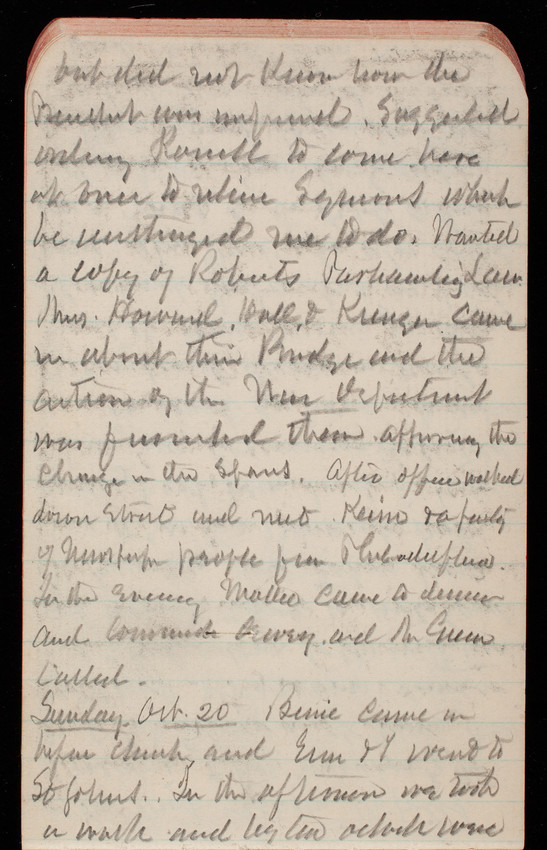 but did not know how the
was informed. Suggested
ordering to come here
at once to relieve which
be me to do. Wanted
a copy of Roberts Law.
Howard, Hall, & came
in about their Bridge and the
action of the War Department
was presented them approving the
change in the spans. After office walked
down Street and met Keim & a party
of Newspaper people from Philadelphia.
In the Evening came to dinner
and and Mr Green
called.
Sunday Oct. 20 came in
before church and & I went to
St Johns. In the afternoon we took
a walk and by ten oclock were